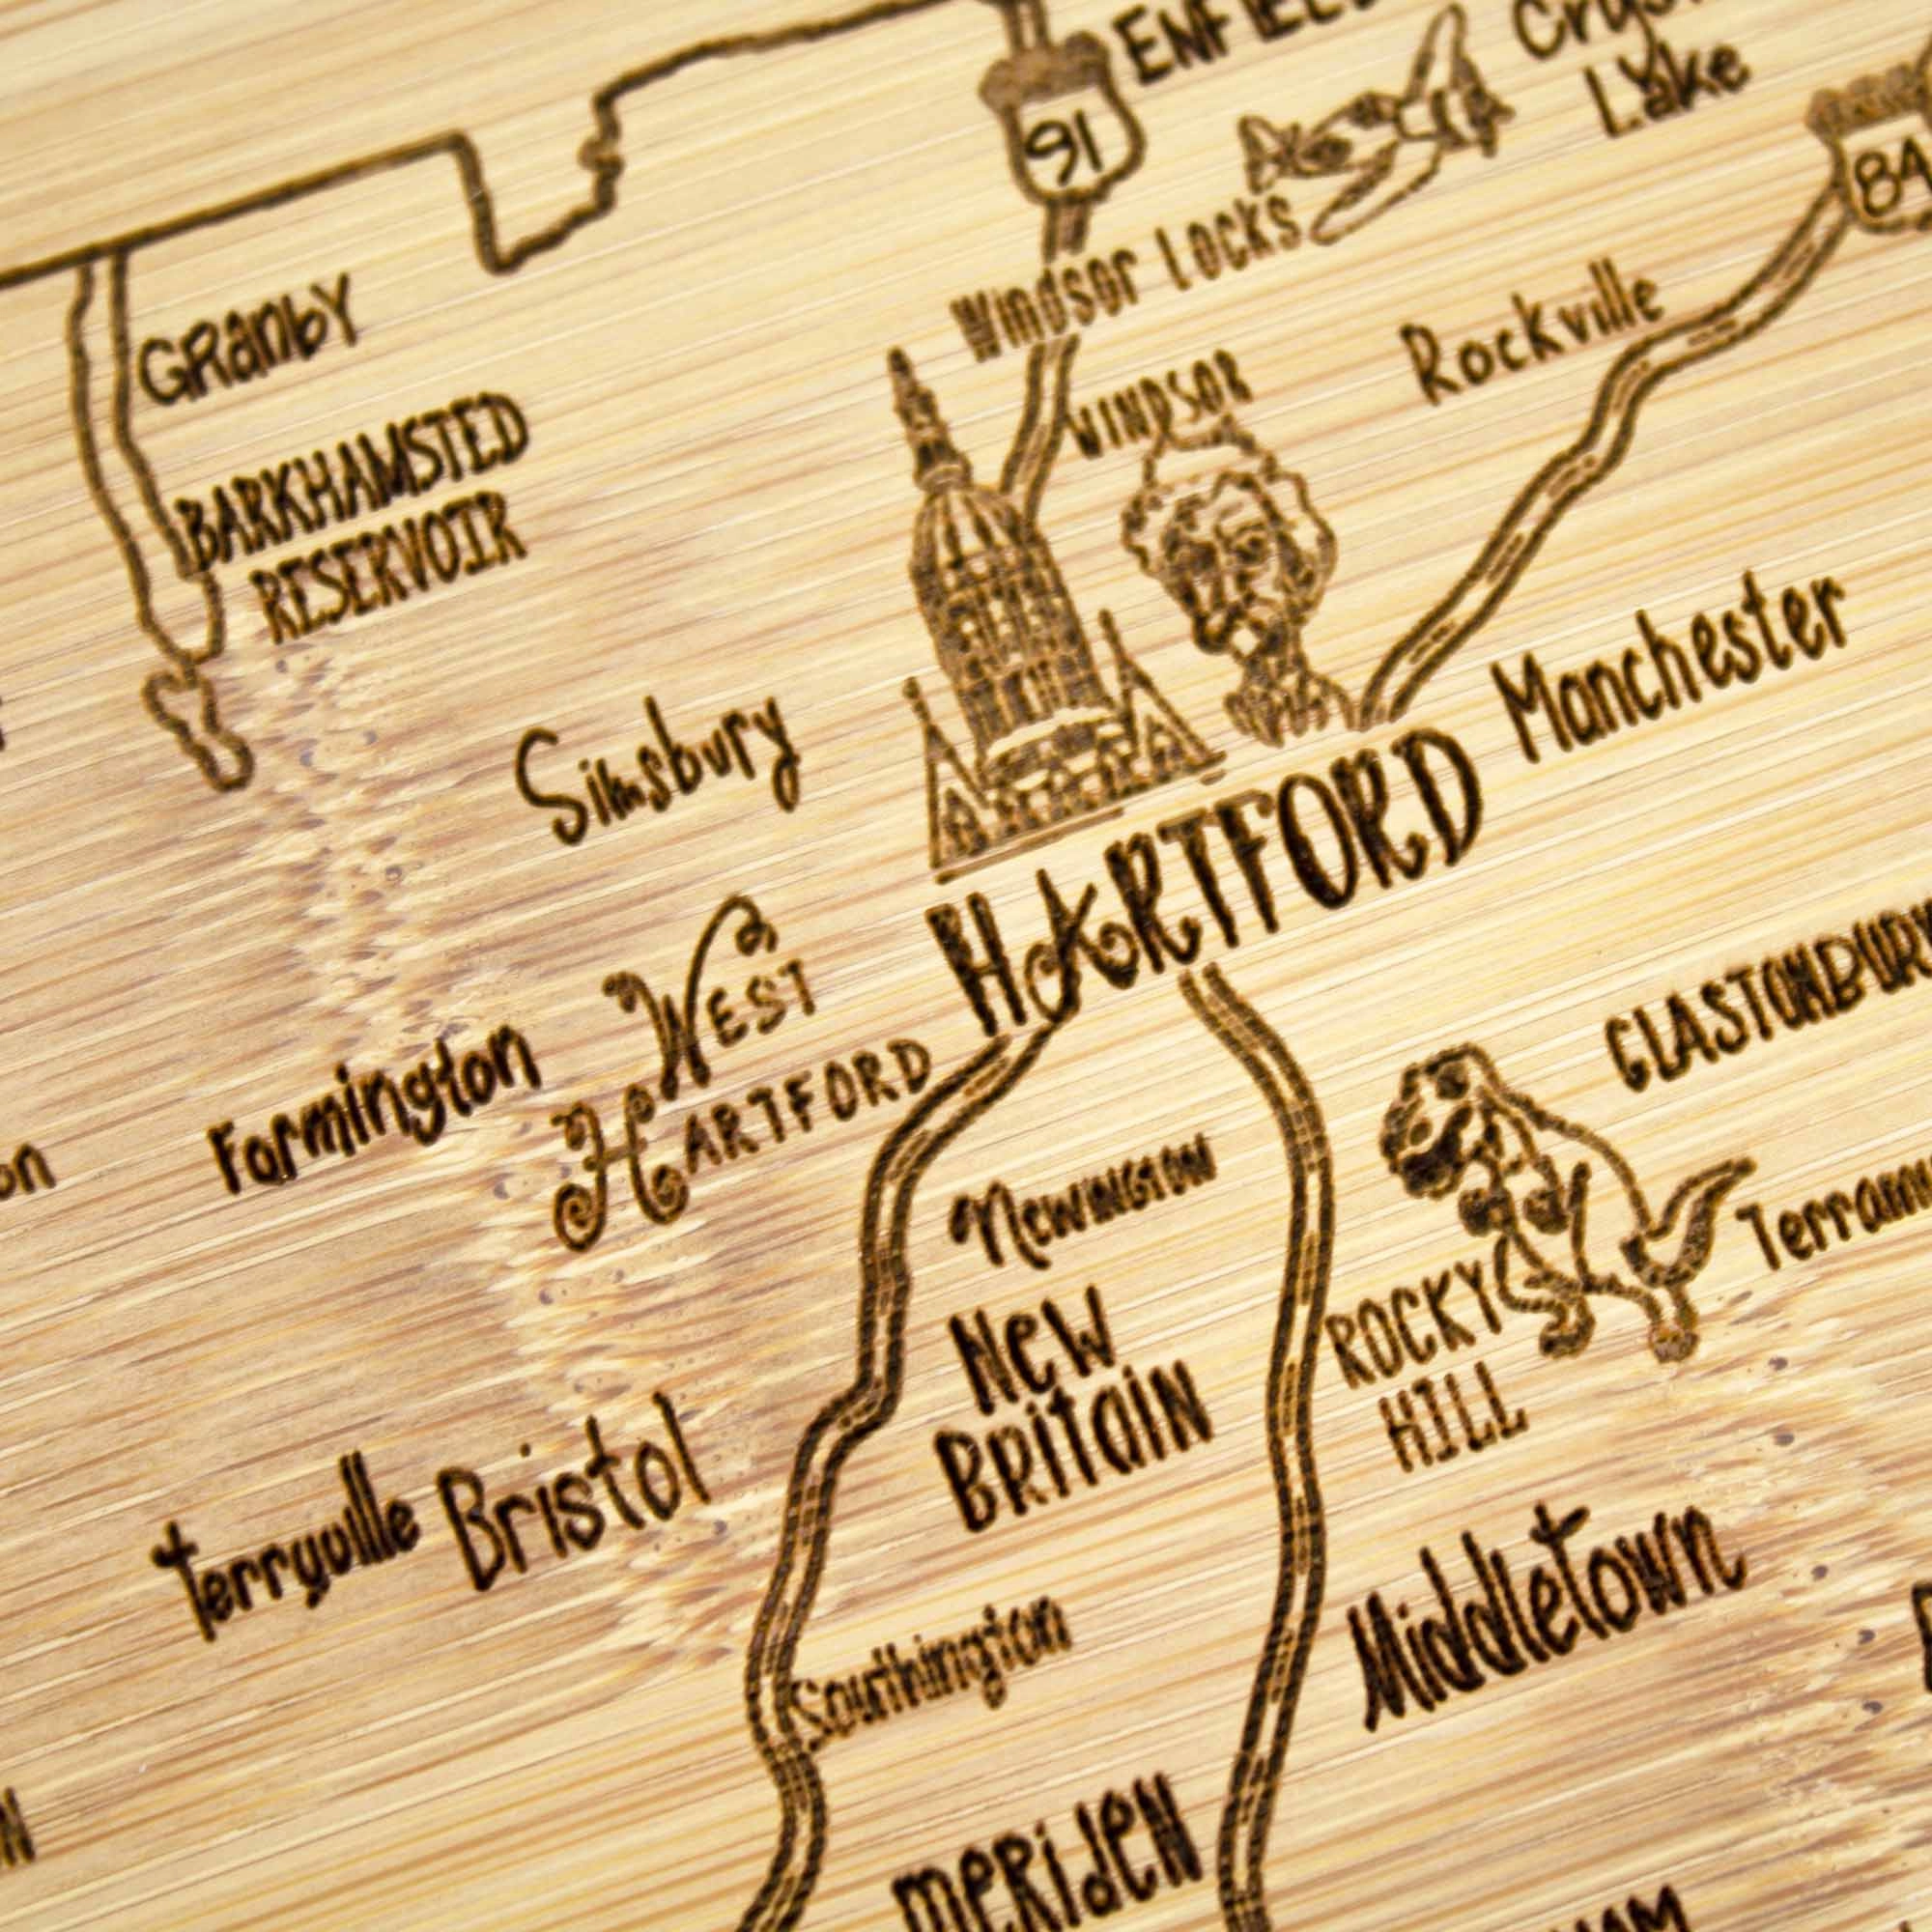 ENFIELD
91
Lake
84
Windsor Locks
GRanby
WINDSOR
Rockville
BARKHAMSTED
RESERVOIR
Simsbury
Manchester
HARTFORD
WEST
HARTFORD
Farmington
GLASTONBURY
Newington
New
BRitaiN
ROCKY
HILL
Terryville
Bristol
Middletown
Southington
MeRideN